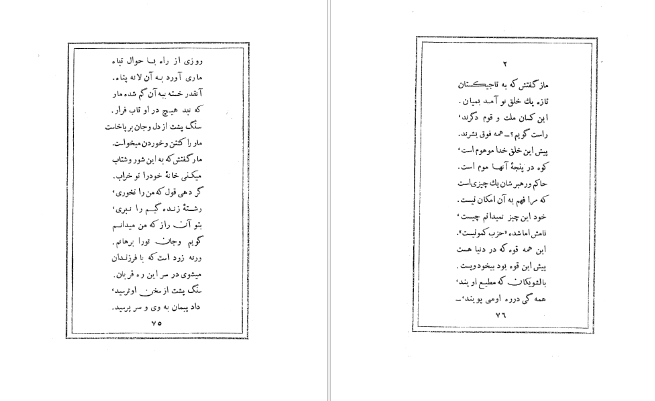 روزی از راه بــا حوال تباه
ماری آورد بـه آن لانه پناه.
آنقدر خسته بـد آن گم شده مار
که نبد هیـچ در او تاب فرار.
سنگ پشت از دل وجان برپاخاست
مار را کشتن و خوردن میخواست.
مار گفتش که به این شور وشتاب
میکنی خانهٔ خودرا تو خراب.
گر دهی قول که من را نخوری،
رشتهٔ زنـده گیـم را نبری؛
بتو آن راز که من میدانـم
گویم وجان تورا برهانم.
ورنه زود است که با فرزندان
میشوی در سر این ره قربان.
سنگ پشت از سخن او ترسید،
داد پیمان به وی و سر پرسید.
۷۵
۲
مار گفتش که به تاجیکستان
تازه یك خلق نو آمـد بمیان.
این کسان ملت و قوم دگرند،
راست گویم ۲ـ همه فوق بشرند.
پیش این خلق خدا موهوم است،
کوه در پنجهٔ آنهـا موم است.
حاکم ورهبر شان یك چیزی است
که مرا فهم به آن امکان نیست.
خود این چیز نمیدانم چیست،
نامش اما شده «حزب کمونیست».
این همه قوه که در دنیا هست
پیش این قوه بود بیخود وپست.
بالشویکان که مطیع او یند،
همه گی درره او می پویند،ـ
۷۶